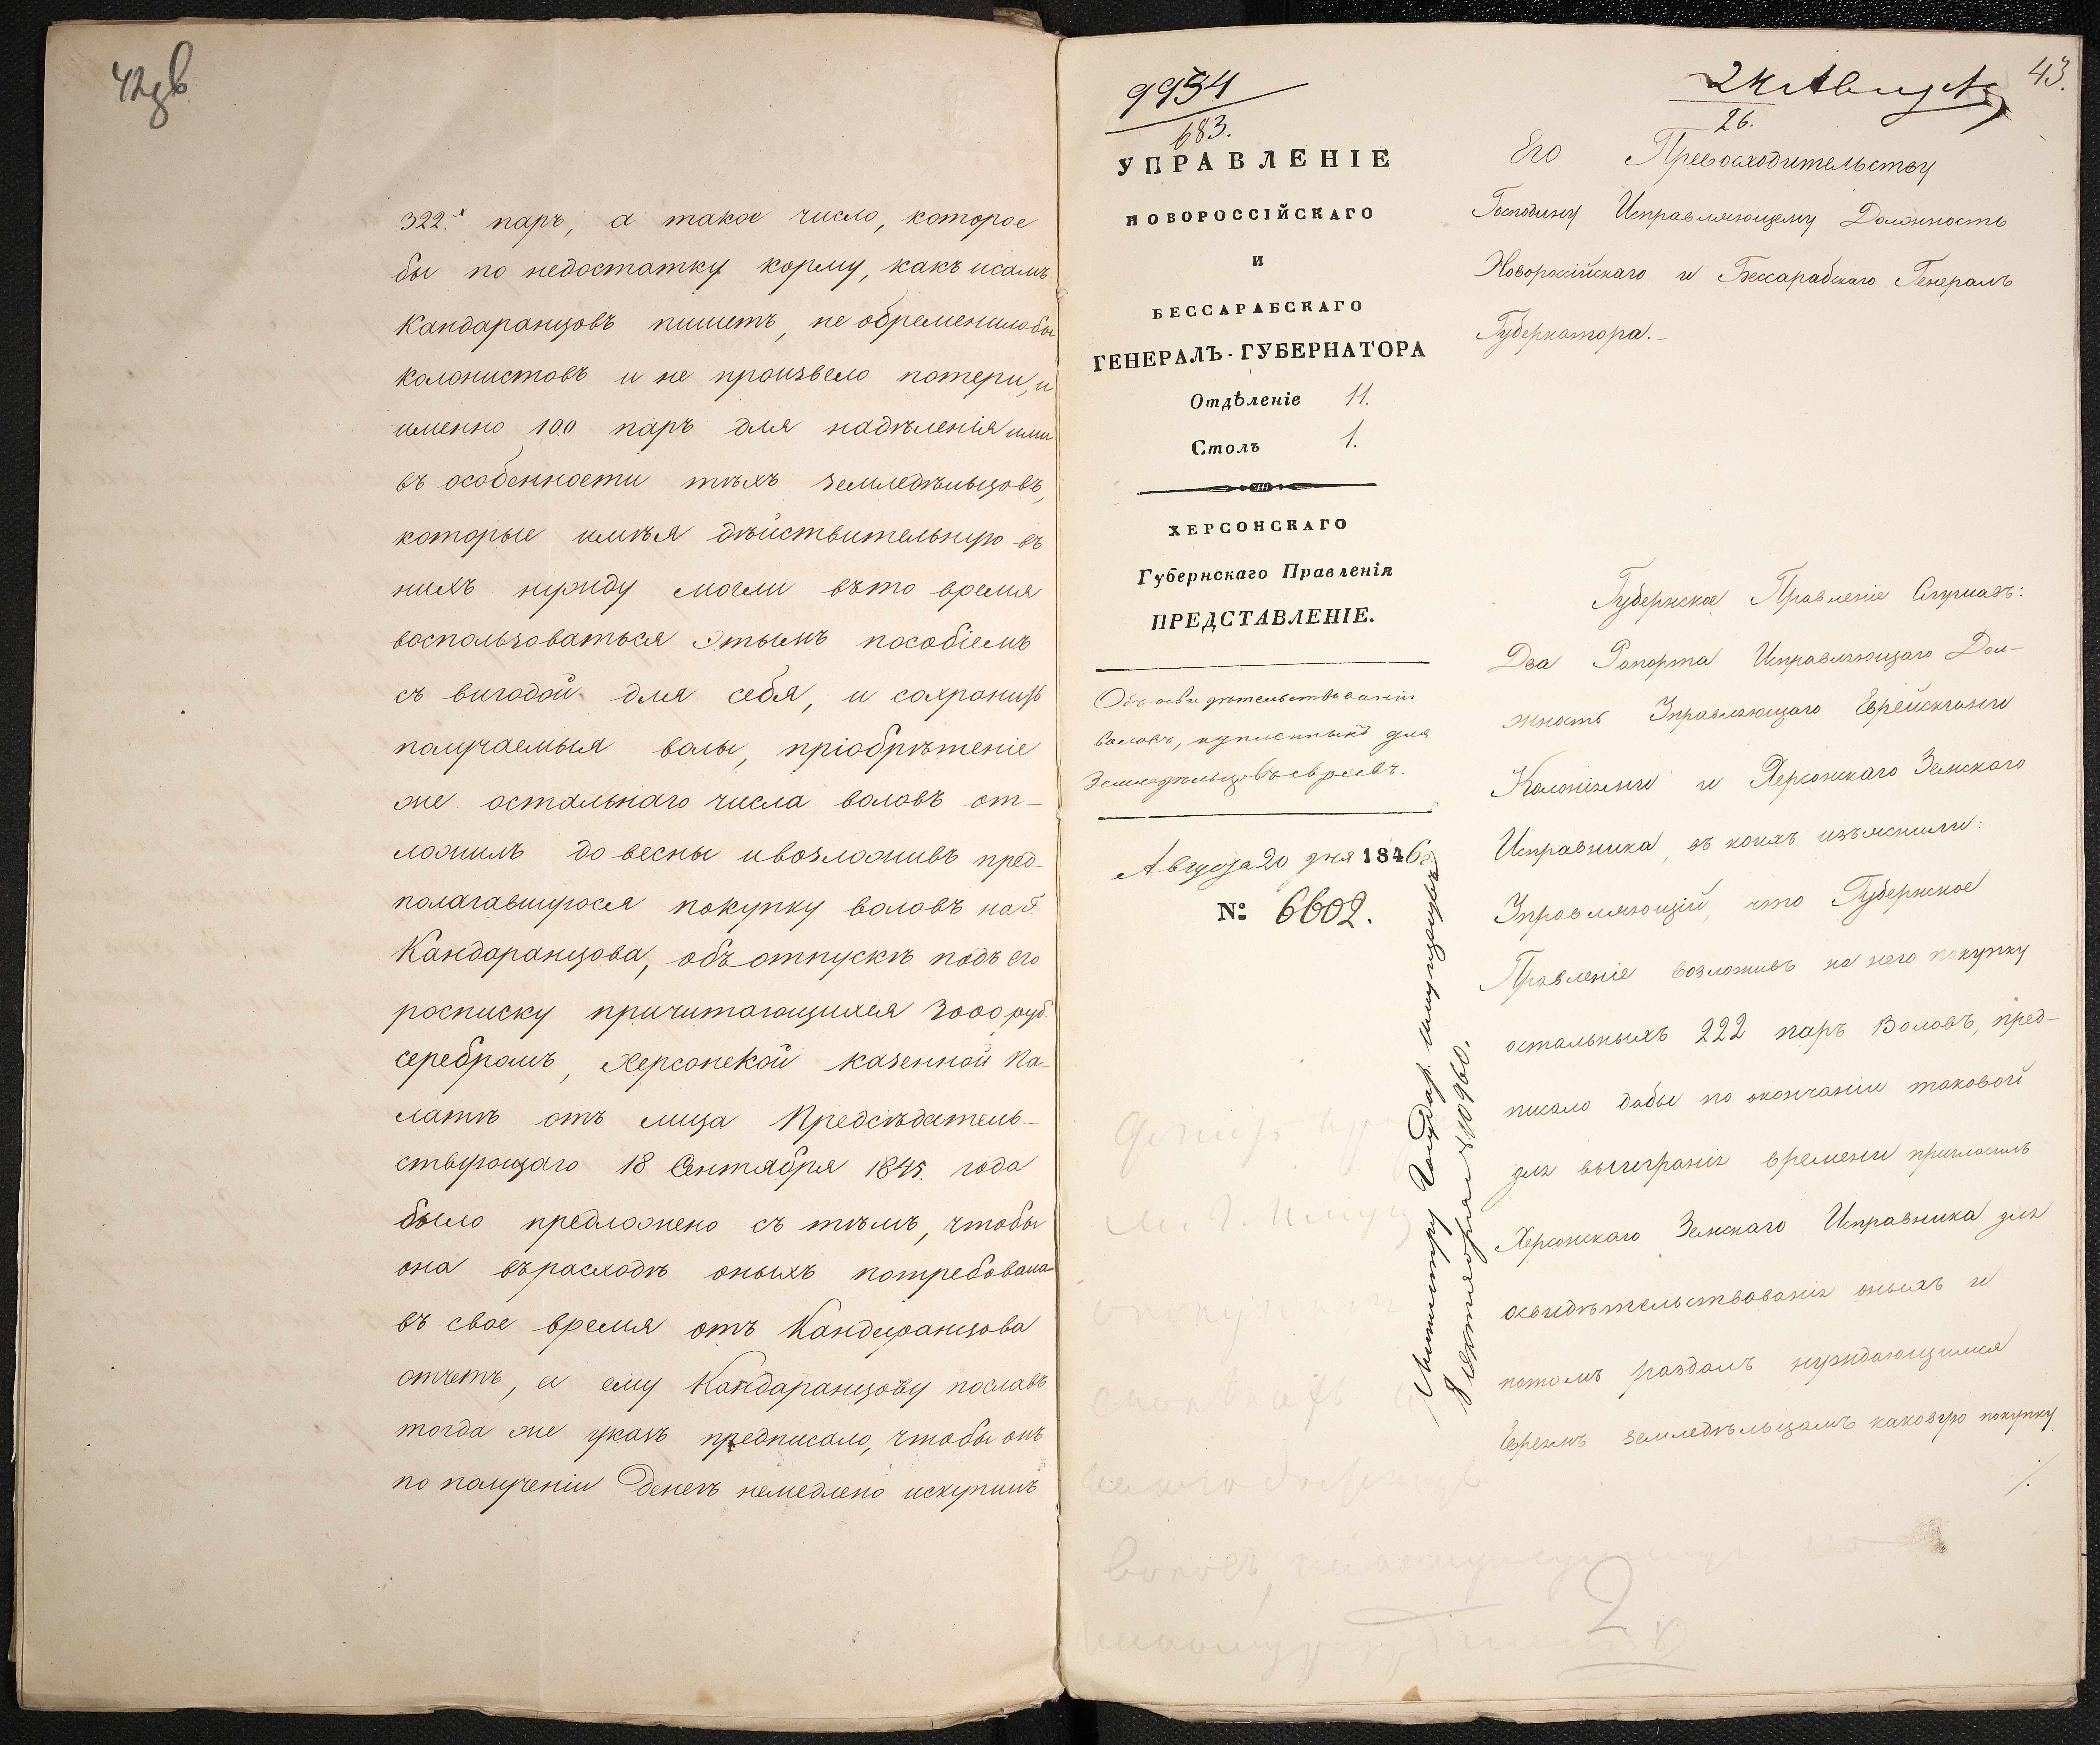 322.х паръ, а такое число, которое
бы по недостатку корму, какъ исамъ
Кандаранцовъ пишетъ, не обременилобы
колонистовъ и не произвело потери, и
именно 100 паръ для надѣленія ими
въ особенности тѣхъ земледѣльцовъ,
которые имѣя дѣйствительную въ
нихъ нужду могли въто время
воспользоваться этымъ пособіемъ
съ вигодой для себя, и сохранить
получаемыя волы, пріобрѣтеніе
же остальнаго числа воловъ от-
ложилъ до весны ивозложивъ пред-
полагавшуюся покупку воловъ на Г.
Кандаранцова, объотпускѣ подъ его
росписку причитающихся 3000 руб.
серебромъ, Херсонской казенной Па-
латѣ отъ лица Предсѣдатель-
ствующаго 18 Сентября 1845. года
было предложено съ тѣмъ, чтобы
она върасходѣ оныхъ потребовала
въ свое время отъ Кандаранцова
отчетъ, а ему Кандаранцову пославъ
тогда же указъ предписало, чтобы онъ
по полученіи денегъ немедлено искупилъ
9934
683.
24 Августа
26.
43.
УПРАВЛЕНІЕ
НОВОРОССІЙСКАГО
И
БЕССАРАБСКАГО
ГЕНЕРАЛЪ-ГУБЕРНАТОРА
Отдѣленіе 11.
Столъ 1.
ХЕРСОНСКАГО
Губернскаго Правленія
ПРЕДСТАВЛЕНІЕ.
Объ освидѣтельствованіи
воловъ, купленныхъ для
Земледѣльцовъ евреевъ.
Августа 20 дня 1846 г.
№ 6602.
Министру Государ. имуществъ
8 сентября № 10960.
Его Превосходительству
Господину Исправляющему Должность
Новороссійскаго и Бессарабскаго Генералъ
Губернатора.
Губернское Правленіе Слушавъ:
Два Рапорта Исправляющаго Дол-
жность Управляющаго Еврейскими
Колоніями и Херсонскаго Земскаго
Исправника, въ коихъ изъяснили:
Управляющій, что Губернское
Правленіе возложивъ на него покупку
остальныхъ 222 паръ Воловъ, пред-
писало дабы по окончаніи таковой
для выигранія времени пригласилъ
Херсонскаго Земскаго Исправника для
освидѣтельствованія оныхъ и
потомъ раздалъ нуждающимся
Евреямъ земледѣльцамъ каковую покупку
2